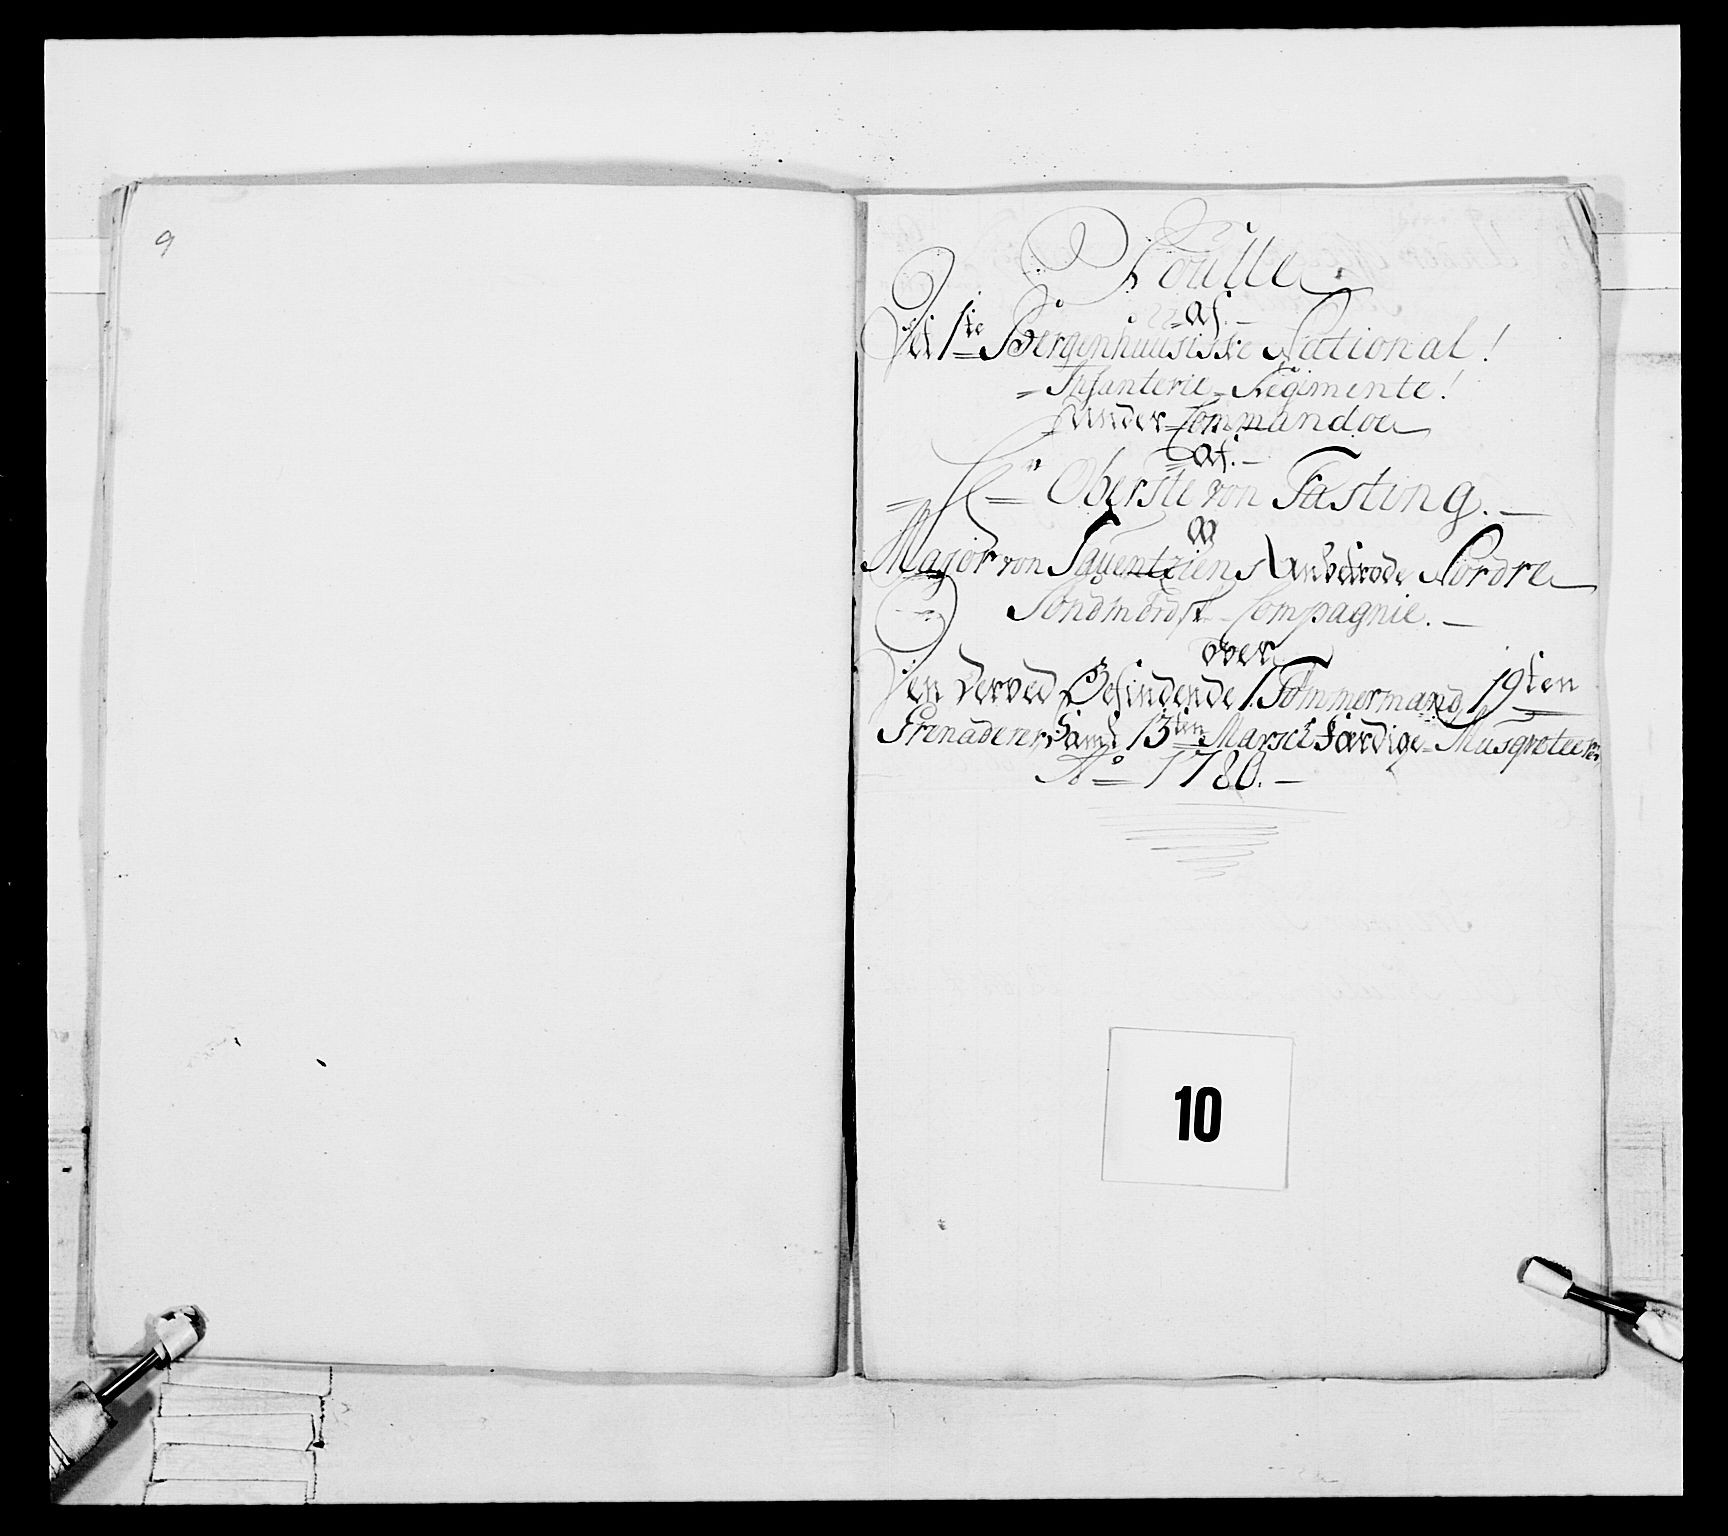 9
Roulle.
Af.
Det 1te Bergenhuusiske National!
Infanterie-Regimente!
under Commandoe
Af.
Hr: Oberste von Fasting.
Major von Tauentziens Anbetroede Nordre
Søndmørske Compagnie.
over
Den derved Befindende 1. Tømmermand, 19ten
Grenaderer samt 13ten Marsch Færdige Musqveteerer
Ao 1780.
10